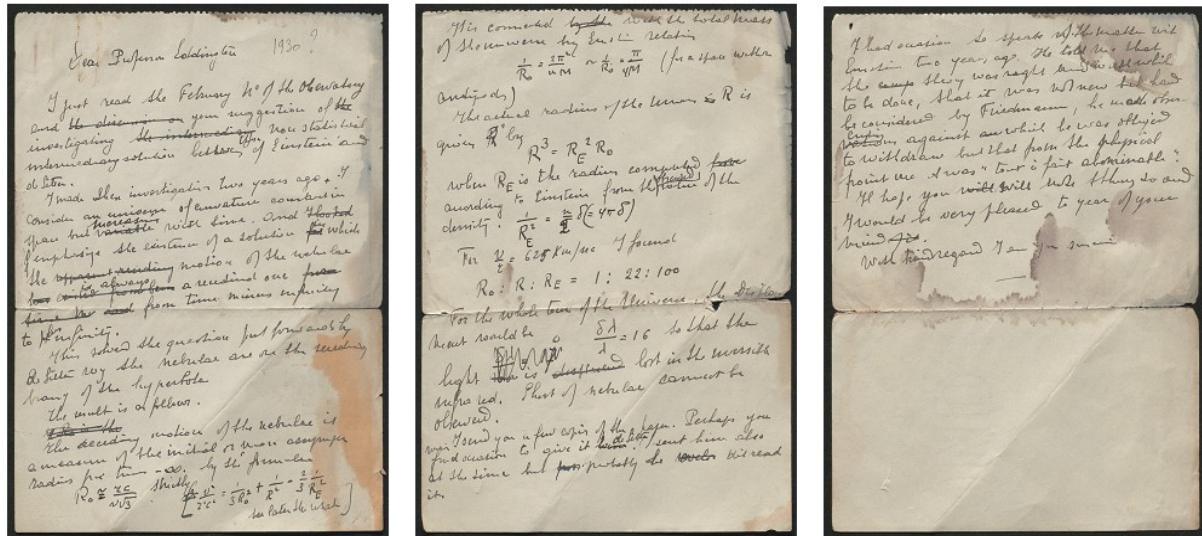 Dear Professor Eddington 1930?
I just read the February No of the Observatory
and the discussion on your suggestion of the
investigating the intermediary non statistical
intermediary solution between of Einstein and
de Sitter.
I made these investigations two years ago. I
consider an universe of curvature constant in
space but variable increasing with time. And I
emphasize the existence of a solution for which
the motion of the nebulae
is always a receding one from
time and from time minus infinity
to plus infinity.
This solved the question put forwards by
de Sitter why the nebulae are on the receding
branch of the hyperbola
The result is as follows.
The receding motion of the nebulae is
a measure of the initial or more assymptotic
radius for time -∞. by the formulae
R₀ ≅ rc / v√3 strictly [v²/r²c² = 1/3R₀² + 1/R² - 2/3 1/R_E²
see later the what]
It is connected by the with the total mass
of the universe by Einstein relation
1/R₀ = 2π²/κM or 1/R₀ = π/4M (for a space without
antipods)
The actual radius of the universe is R is
given by
R³ = R_E² R₀
when R_E is the radius computed from
according to Einstein from the value of the
density. 1/R_E² = κ/2 δ (= 4πδ)
For v/r = 625 Km/sec I found
R₀ : R : R_E = 1 : 22 : 100
For the whole tour of the Universe, the displace
ment would be δλ/λ = 16 so that the
light is lost in the invisible
infrared. Ghost of nebulae cannot be
observed.
I send you a few copies of the paper. Perhaps you
find occasion to give it to de Sitter. I sent him also
at the time but probably he didn't read
it.
I had occasion to speak of the matter with
Einstein two years ago. He told me that
the theory was right and is all which
to be done, that it was not new but had
be considered by Friedmann, he made obser
vations against which he was obliged
to withdraw but that from the physical
point vue it was "tout à fait abominable".
I hope you will will not think so and
I would be very pleased to year of your
with kind regard I am you sincere